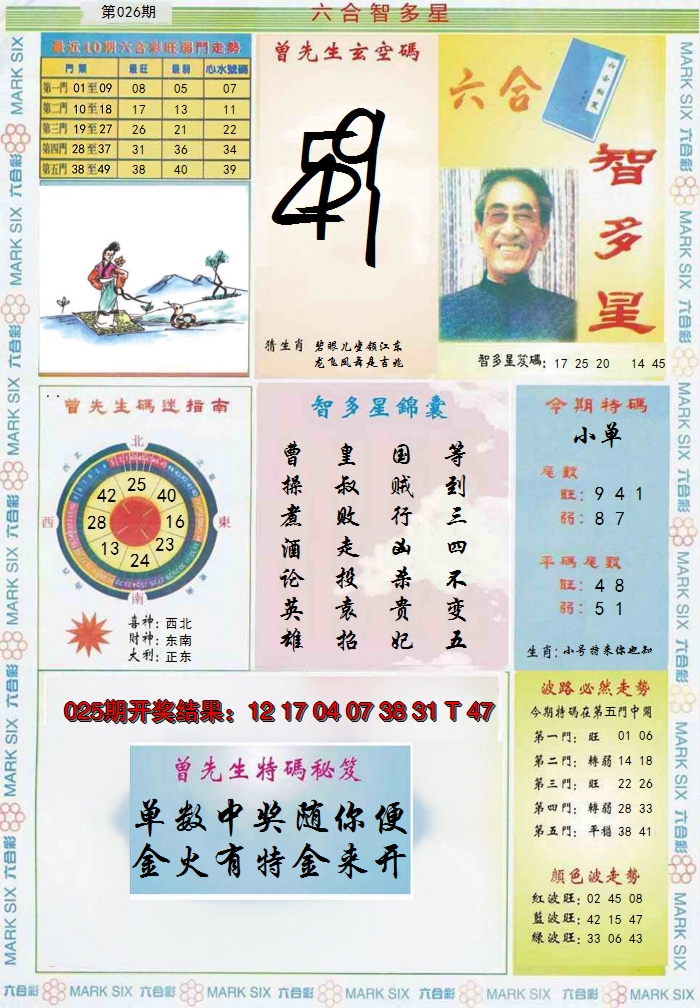 第026期
六合智多星
最近10期六合彩旺弱門走勢
門類 最旺 最弱 心水號碼
第一門 01至09 08 05 07
第二門 10至18 17 13 11
第三門 19至27 26 21 22
第四門 28至37 31 36 34
第五門 38至49 38 40 39
曾先生玄空碼
猜生肖 碧眼儿坐领江东
龙飞凤舞是吉兆
六合
智多星
智多星笈碼: 17 25 20 14 45
曾先生碼迷指南
北
西
東
南
25
42 40
28 16
13 23
24
喜神: 西北
财神: 东南
大利: 正东
智多星錦囊
曹操煮酒论英雄
皇叔败走投袁招
国贼行凶杀贵妃
等到三四不变五
今期特碼
小单
尾數
旺: 9 4 1
弱: 8 7
平碼尾數
旺: 4 8
弱: 5 1
生肖: 小号特来你也知
025期开奖结果: 12 17 04 07 38 31 T 47
曾先生特碼秘笈
单数中奖随你便
金火有特金来开
波路必然走勢
今期特碼在第五門中開
第一門: 旺 01 06
第二門: 轉弱 14 18
第三門: 旺 22 26
第四門: 轉弱 28 33
第五門: 平穩 38 41
顏色波走勢
紅波旺: 02 45 08
藍波旺: 42 15 47
綠波旺: 33 06 43
MARK SIX 六合彩